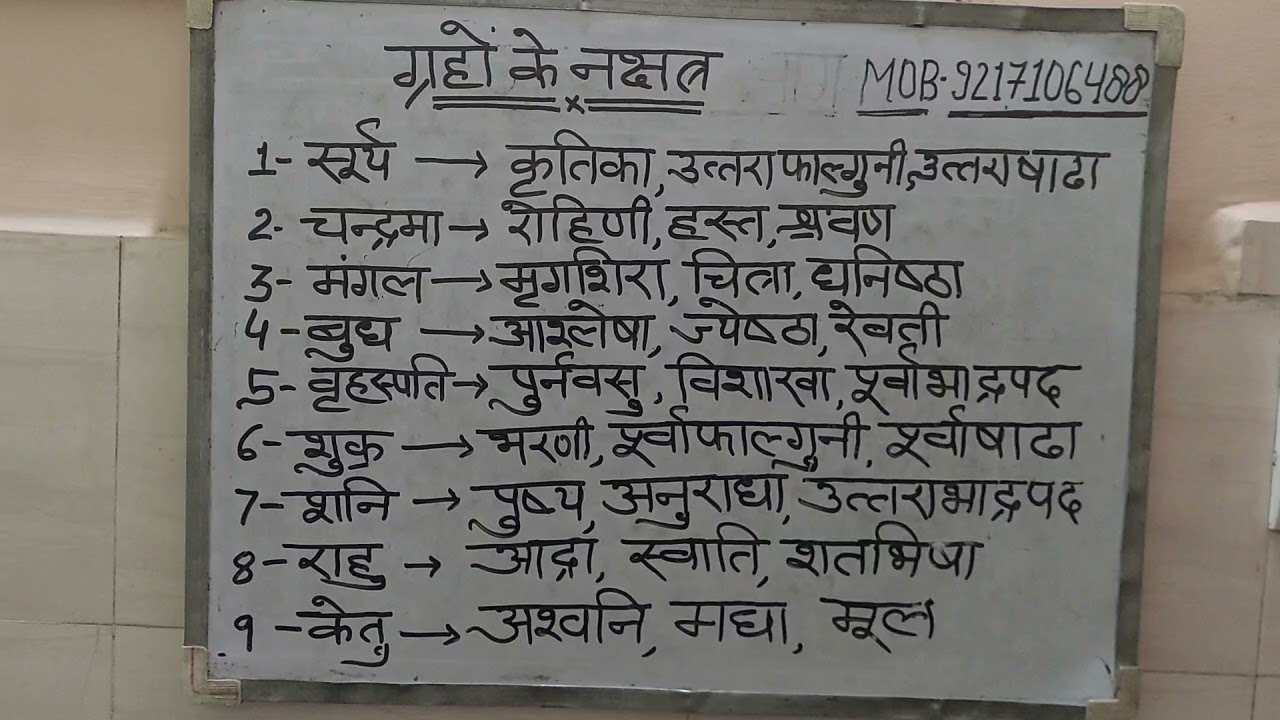 ग्रहों के नक्षत्र MOB-9217106488
1- सूर्य → कृतिका, उत्तराफाल्गुनी, उत्तराषाढा
2- चन्द्रमा → रोहिणी, हस्त, श्रवण
3- मंगल → मृगशिरा, चित्रा, धनिष्ठा
4- बुध → आश्लेषा, ज्येष्ठा, रेवती
5- वृहस्पति → पुर्नवसु, विशाखा, पूर्वाभाद्रपद
6- शुक्र → भरणी, पूर्वाफाल्गुनी, पूर्वाषाढा
7- शनि → पुष्य, अनुराधा, उत्तराभाद्रपद
8- राहु → आद्रा, स्वाति, शतभिषा
9- केतु → अश्वनि, मघा, मूल